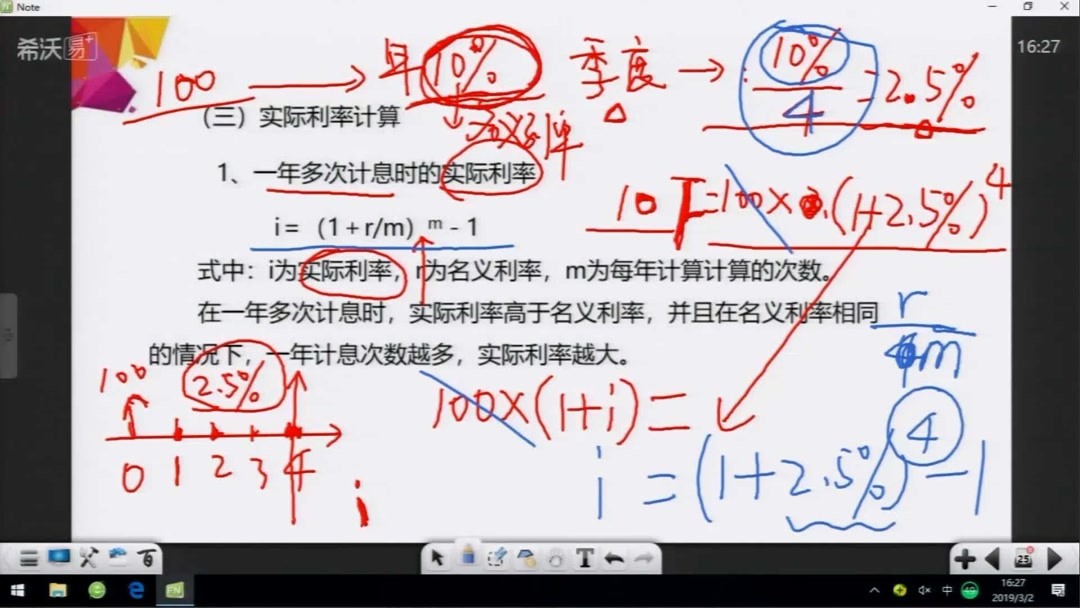 Note
希沃易+
16:27
100 → 年 10% 季度 → 10%/4 = 2.5%
(三)实际利率计算
名义利率
1、一年多次计息时的实际利率
=100×(1+2.5%)^4
i=(1+r/m)^m-1
式中：i为实际利率，r为名义利率，m为每年计算计算的次数。
在一年多次计息时，实际利率高于名义利率，并且在名义利率相同
r/m
的情况下，一年计息次数越多，实际利率越大。
100 2.5%
100×(1+i)=
0 1 2 3 4
i
i=(1+2.5%)^4-1
T
25
中
16:27
2019/3/2